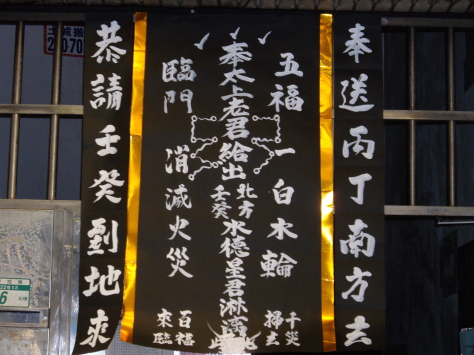 奉送丙丁南方去
五福一白水輪
千災掃去
奉太上老君給出
北方
壬癸
水德星君淋
臨門消滅火災
百福來臨
恭請壬癸到地來
6